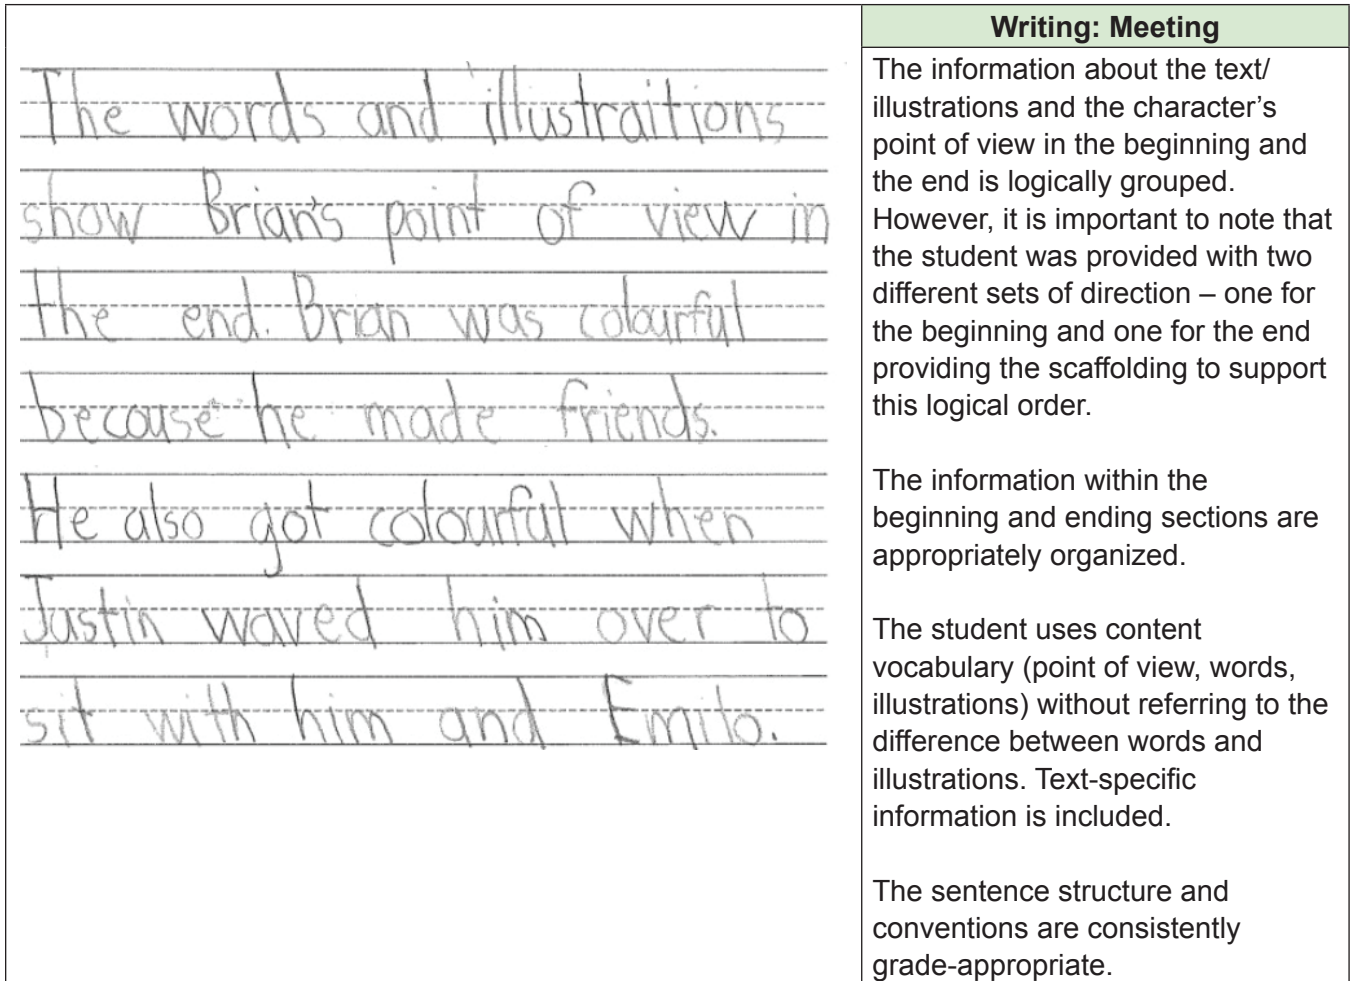 The words and illustraitions
show Brian's point of view in
the end. Brian was colourful
because he made friends.
He also got colourful when
Justin waved him over to
sit with him and Emilo.
Writing: Meeting
The information about the text/
illustrations and the character’s
point of view in the beginning and
the end is logically grouped.
However, it is important to note that
the student was provided with two
different sets of direction – one for
the beginning and one for the end
providing the scaffolding to support
this logical order.
The information within the
beginning and ending sections are
appropriately organized.
The student uses content
vocabulary (point of view, words,
illustrations) without referring to the
difference between words and
illustrations. Text-specific
information is included.
The sentence structure and
conventions are consistently
grade-appropriate.